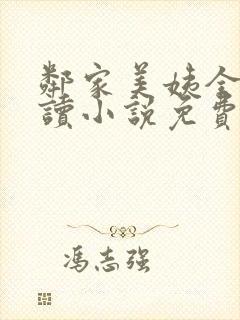 鄰家美姨全
讀小說免費
馮志强